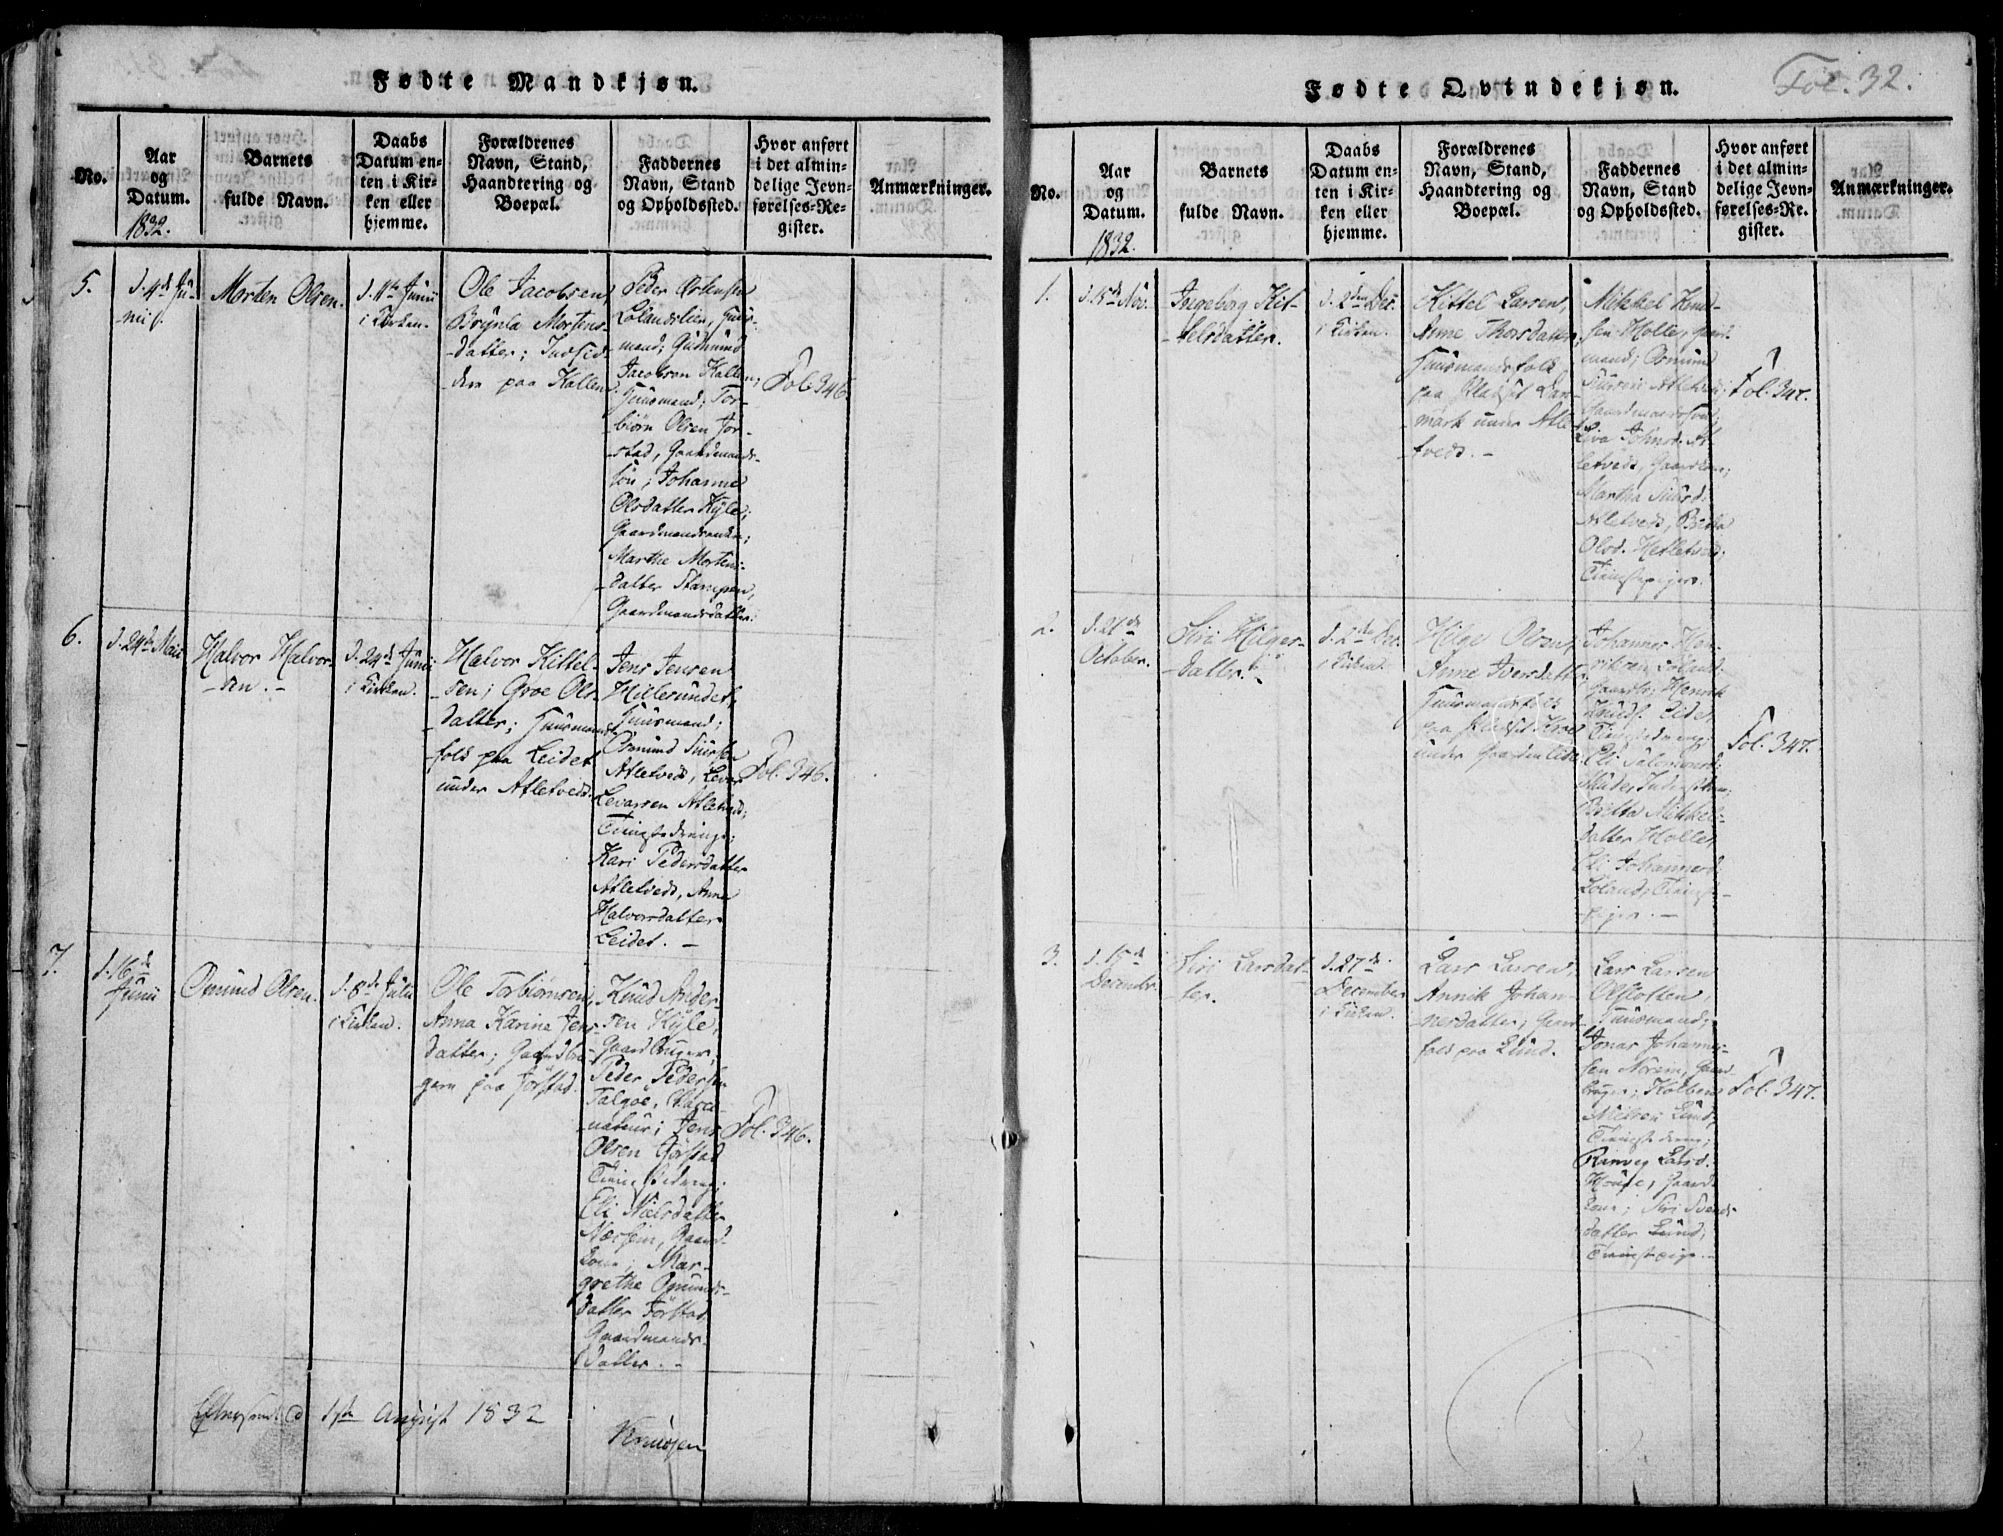 Fødte Mandkjøn.
No.
Aar
og
Datum.
1832.
Barnets
fulde Navn.
Daabs
Datum en-
ten i Kir-
ken eller
hjemme.
Forældrenes
Navn, Stand,
Haandtering og
Boepæl.
Faddernes
Navn, Stand
og Opholdssted.
Hvor anført
i det almin-
delige Jevn-
førelses-Re-
gister.
Anmærkninger.
5.
d. 4de Ju-
nii
Morten Olsen.
d. 11te Junii
i Kirken.
Ole Jacobsen,
Brynla Mortens-
datter; Indsid-
dere paa Kallen.
Peder
Lolandslien, Huus-
mand; Gudmund
Jacobsen Kallen,
Huusmand; Tor-
biørn Olsen Jør-
stad, Gaardmands-
søn; Johanne
Olsdatter Kyle,
Gaardmandsenke;
Marthe Mortens-
datter Stangen,
Gaardmandsdatter.
Fol. 346.
6.
d. 24de Maii
Halvor Halvor-
sen. -
d. 24de Junii
i Kirken.
Halvor Kittel-
sen; Groe Ols-
datter; Huusmands-
folk paa Leidet
under Atletveds.
Jens Jensen
Hillesundet,
Huusmand;
Osmund Siursen
Atletveds, Levar
Levarsen Atletveds;
Tienestedrenge;
Kari Pedersdatter
Atletveds, Anna
Halvorsdatter
Leidet. -
Fol. 346.
7.
d. 16de
Junii
Omund Olsen.
d. 8de Julii
i Kirken.
Ole Torbiørnsen,
Anna Karine Jens-
datter; Gaardbru-
gere paa Jørstad.
Knud Ander-
sen Kyle,
Gaardbruger,
Peder Pedersen
Talgøe,
Jens
Olsen Jørstad
Tienestedreng;
Eli Nielsdatter
Nærheim, Gaard-
kone; Mar-
grethe Omunds-
datter Jørstad
Gaardmands-
datter. -
Fol. 346.
1ste August 1832
Fødte Qvindekjøn.
Fol. 32.
No.
Aar
og
Datum.
1832.
Barnets
fulde Navn.
Daabs
Datum en-
ten i Kir-
ken eller
hjemme.
Forældrenes
Navn, Stand,
Haandtering og
Boepæl.
Faddernes
Navn, Stand
og Opholdssted.
Hvor anført
i det almin-
delige Jevn-
førelses-Re-
gister.
Anmærkninger.
1.
Nov.
Ingeborg Kit-
telsdatter.
d. 2den Dec.
i Kirken.
Kittel Larsen,
Anne Thorsdatter,
Huusmandsfolk
paa Pladset
under Atle-
tveds. -
Mikkel Knud-
sen Holle,
mand; Osmund
Siursen Atletveds,
Gaardmandssøn;
Liva Johnsd. At-
letveds, Gaardkone;
Martha Siursd.
Atletveds, Britha
Olsd. Hetletveds;
Tienestepiger.
Fol. 347.
2.
d. 21de
October.
Siri Helges-
datter.
d. 2den Dec.
i Kirken.
Helge Olsen,
Anne Iversdatter
Huusmandsfolk
paa Pladset
under Gaarden
Johannes Hen-
riksen Loland,
Henrik
Knuds. Eide,
Tienestedreng;
Eli
Britta Mikkels-
datter Holle,
Eli Johannesd.
Loland, Tieneste-
piger. -
Fol. 347.
3.
d. 15de
December.
Siri Larsdat-
ter.
d. 27de
December
i Kirken.
Lars Larsen,
Annik Johan-
nesdatter; Gaard-
folk paa Lund.
Lars Larsen
Huusmand;
Jonas Johannes-
sen Norem, Gaard-
bruger; Kolbens
Nielsen Lund,
Tienestedreng;
Ranveg Larsd.
Houge, Gaard-
kone; Siri Svends-
datter Lund,
Tienestepige. -
Fol. 347.